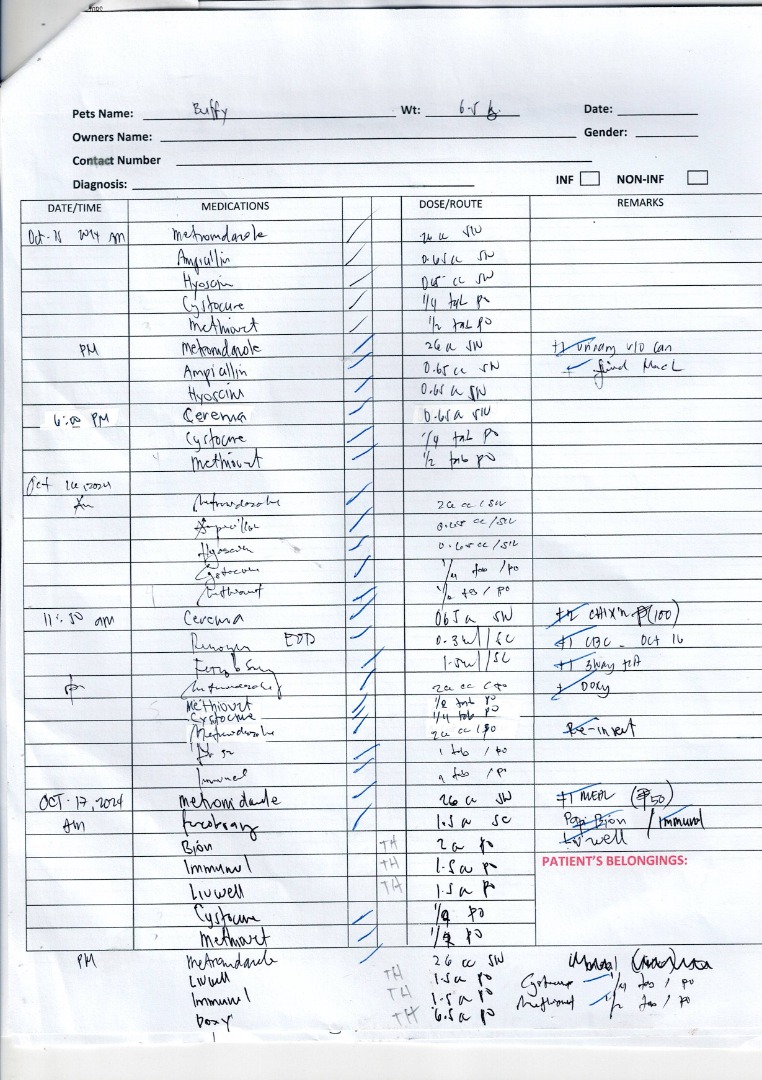 Pets Name: Buffy Wt: 6.5 kg Date:
Owners Name: Gender:
Contact Number
Diagnosis: INF NON-INF
DATE/TIME MEDICATIONS DOSE/ROUTE REMARKS
Oct. 15 2024 AM Metronidazole 26 cc SIV
Ampicillin 0.65 cc SIV
Hyoscin 0.65 cc SIV
Cystocure 1/4 tab po
Methiovet 1/2 tab po
PM Metronidazole 26 cc SIV +1 urinary w/o can
Ampicillin 0.65 cc SIV
Hyoscin 0.65 cc SIV
6:00 PM Cerenia 0.65 cc SIV
Cystocure 1/4 tab po
Methiovet 1/2 tab po
Oct 16, 2024
Am Metronidazole 26 cc / SIV
Ampicillin 0.65 cc / SIV
Hyoscin 0.65 cc / SIV
Cystocure 1/4 tab / po
Methiovet 1/2 tab / po
11:30 am Cerenia 0.65 cc SIV +2 CHIX'n ₱(100)
EOD 0.3ml / SC +1 CBC - OCT 16
1.5ml / SC +1 3way
Metronidazole + Doxy
Methiovet 1/2 tab po
Cystocure 1/4 tab po
Metronidazole Re-insert
1 tab / po
Immunol / po
OCT. 17, 2024 Metronidazole 26 cc SIV +1 MEAL (₱50)
AM 1.5 cc SC Papi Bion / Immunol
Bion TH 2 cc po Livwell
Immunol TH 1.5 cc po PATIENT'S BELONGINGS:
Livwell TH 1.5 cc po
Cystocure 1/4 po
Methiovet po
PM Metronidazole 26 cc SIV
Livwell TH 1.5 cc po Cystocure 1/4 tab / po
Immunol TH 1.5 cc po Methiovet 1/2 tab / po
Doxy TH 6.5 cc po